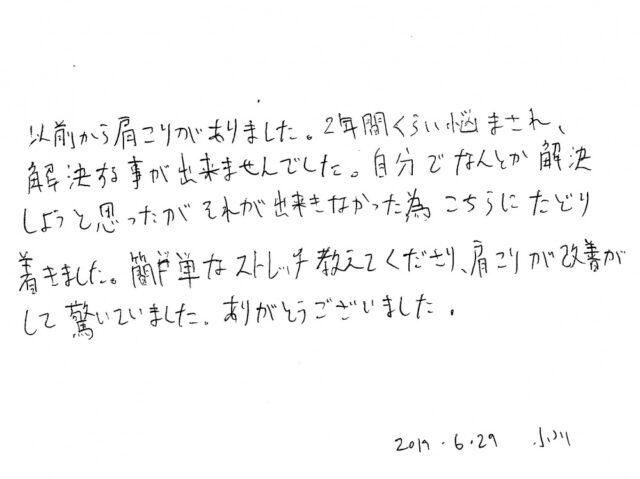 以前から肩こりがありました。2年間くらい悩まされ、
解決する事が出来ませんでした。自分でなんとか解決
しようと思ったがそれが出来きなかった為こちらにたどり
着きました。簡単なストレッチ教えてくださり、肩こりが改善が
して驚いていました。ありがとうございました。
2019.6.29 小川